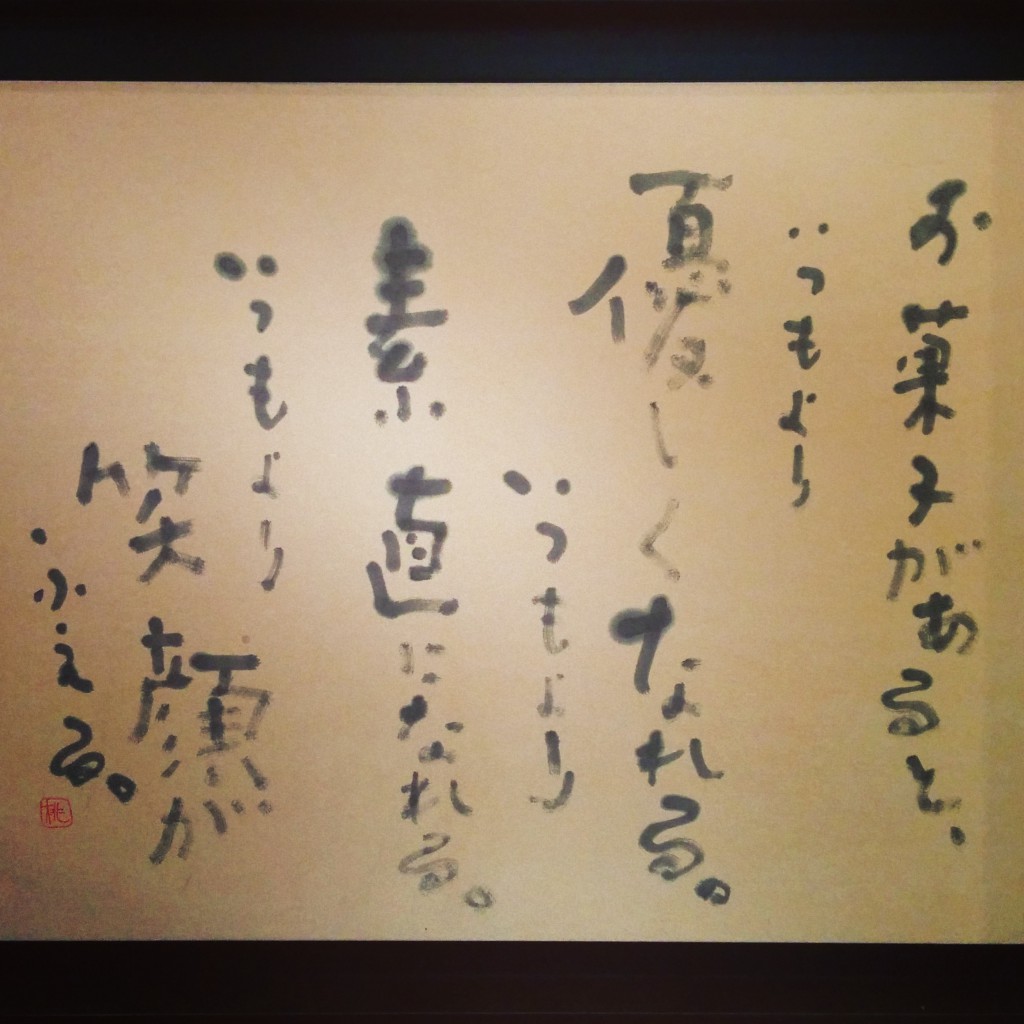 お菓子があると、
いつもより
優しくなれる。
いつもより
素直になれる。
いつもより
笑顔が
ふえる。
桃